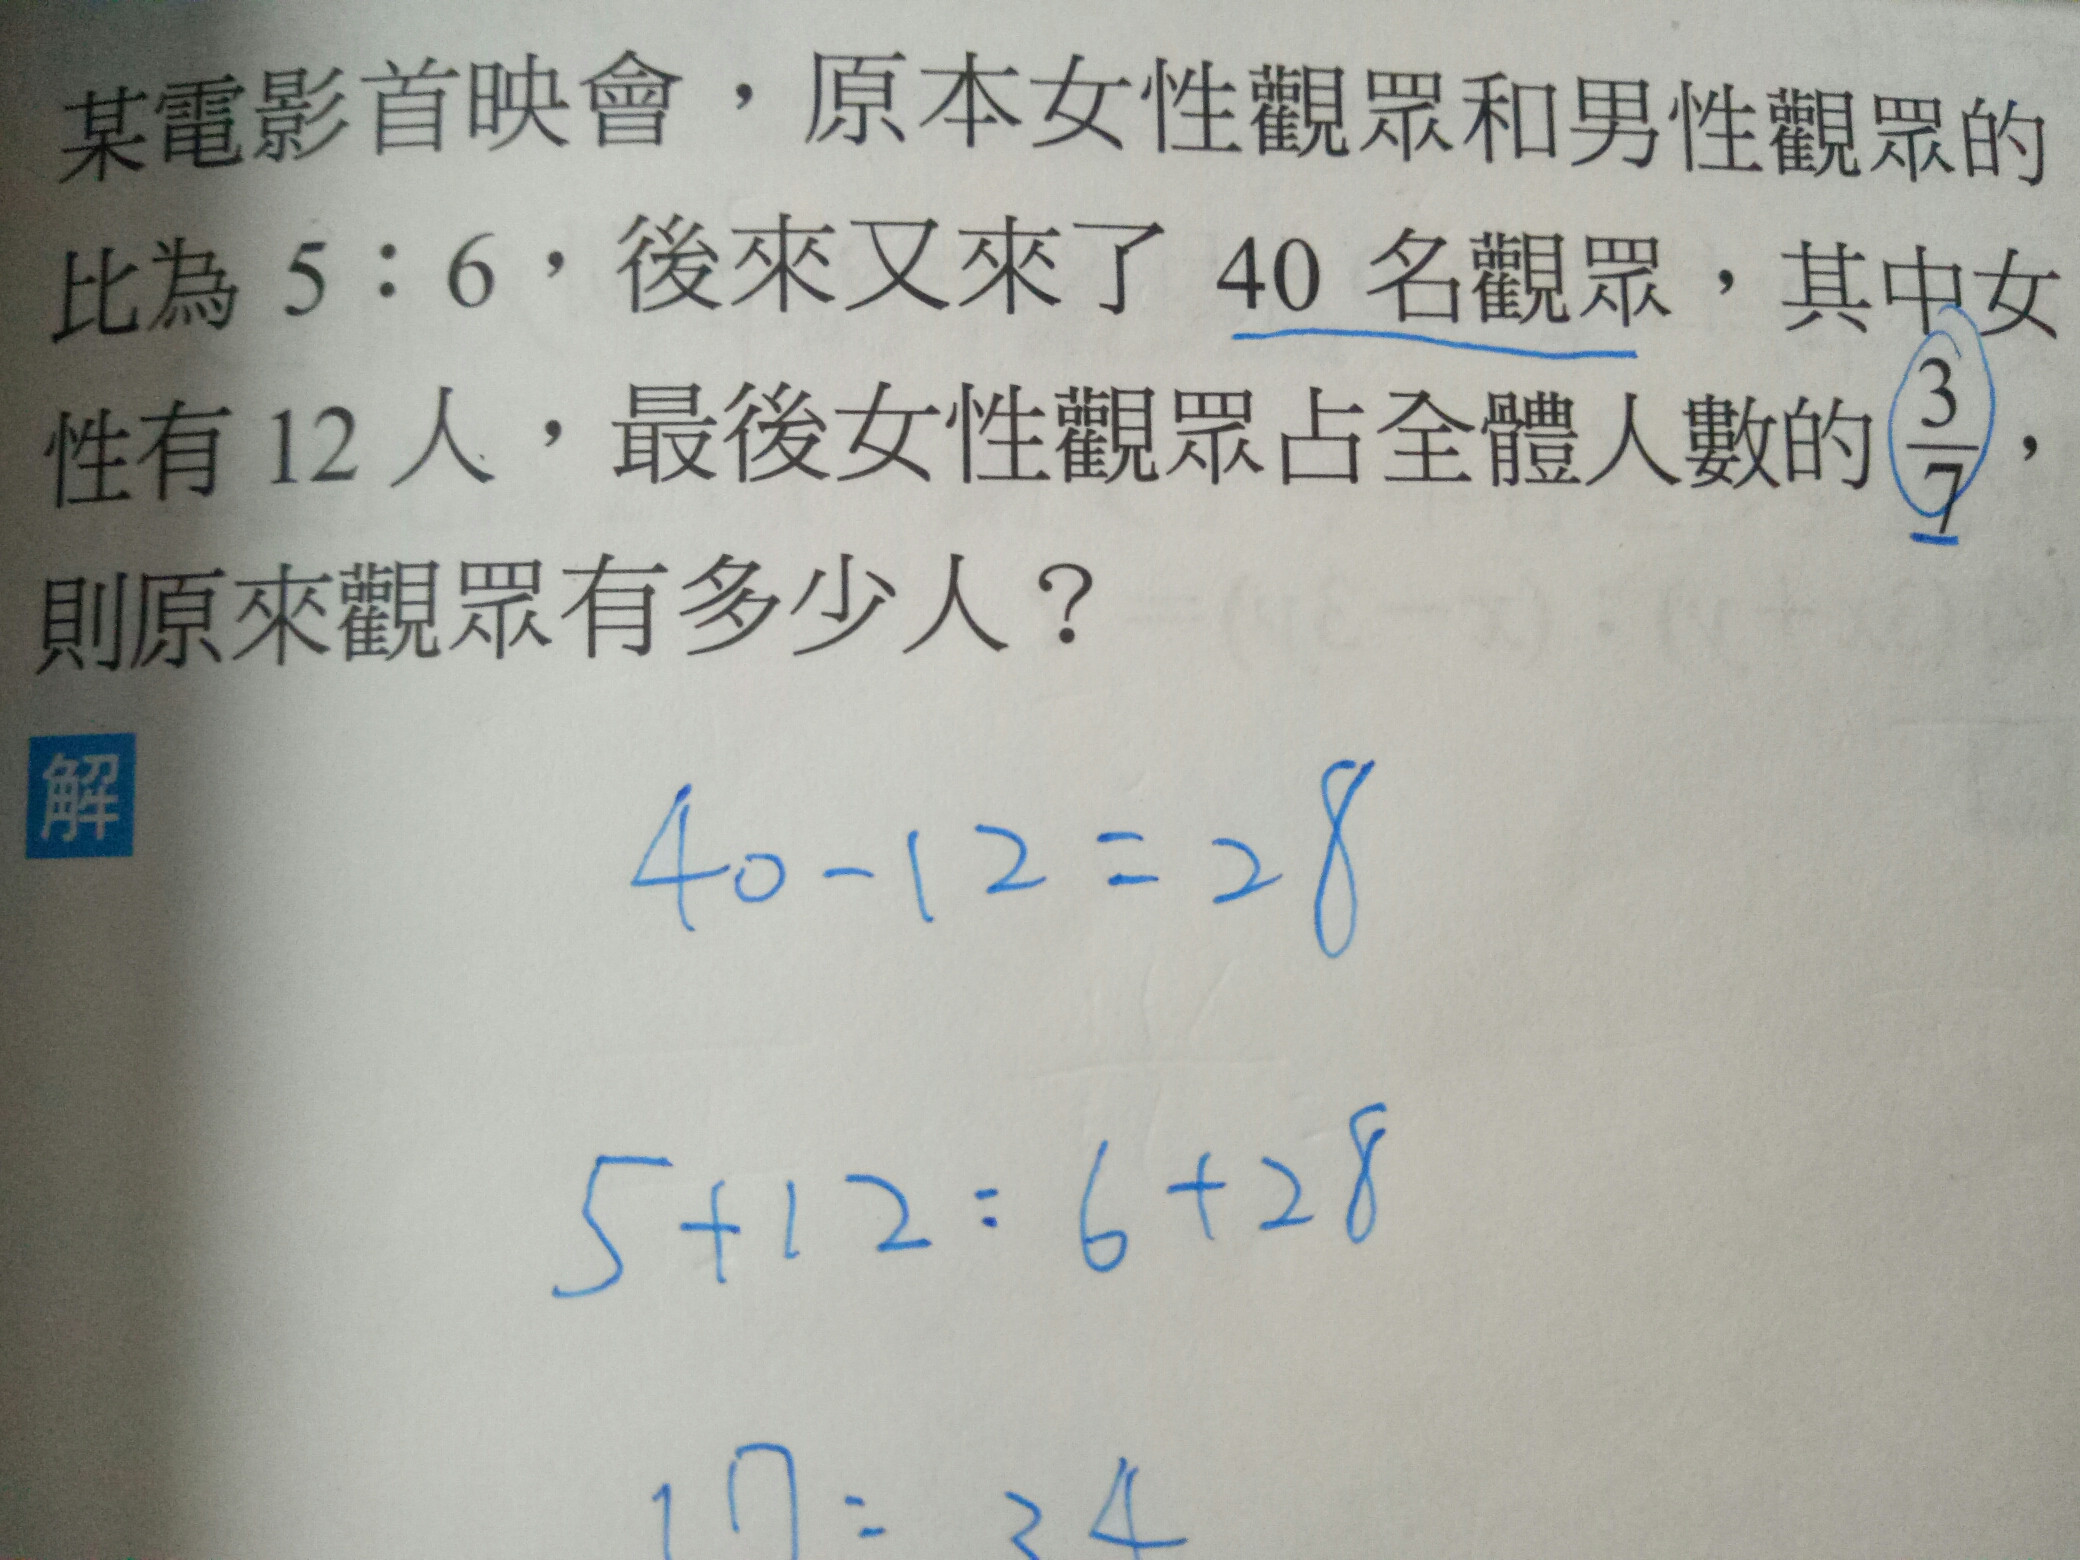 某電影首映會，原本女性觀眾和男性觀眾的
比為 5：6，後來又來了 40 名觀眾，其中女
性有 12 人，最後女性觀眾占全體人數的 3/7，
則原來觀眾有多少人？
解
40-12=28
5+12:6+28
17:34